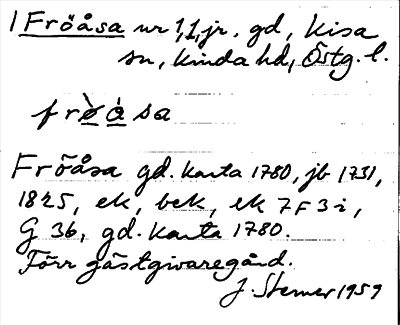 1 Fröåsa nr 1, 1, jr. gd, Kisa
sn, Kinda hd, Östg. l.
frø̀ȧsa
Fröåsa gd. karta 1780, jb 1731,
1825, ek, bek, ek 7F3i,
G 36, gd. karta 1780.
Förr gästgivaregård.
J. Sterner 1959